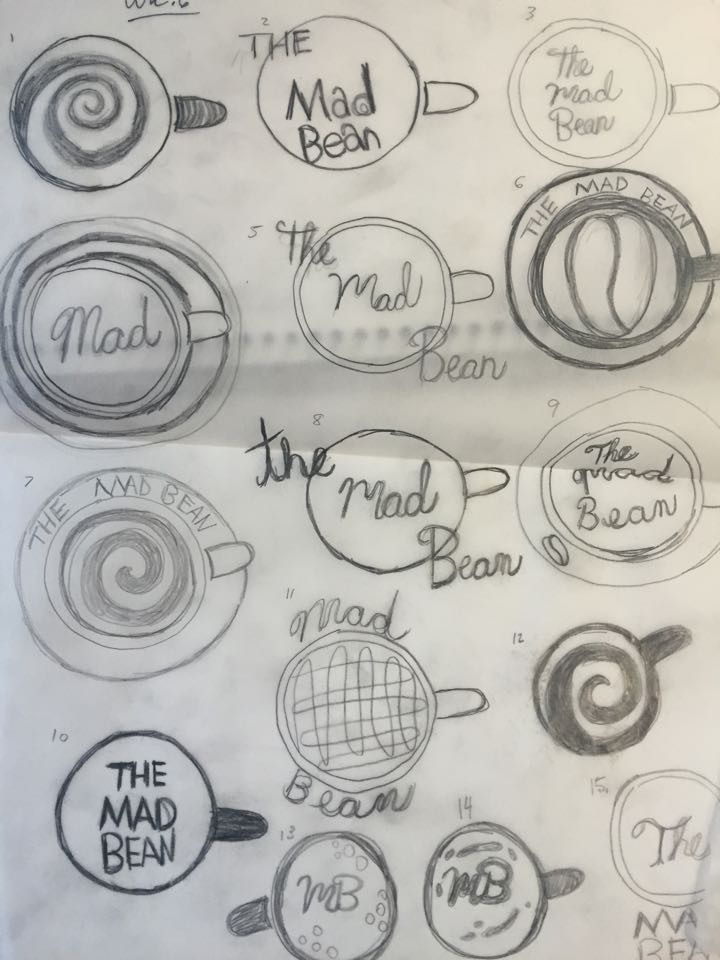 1
2
THE
Mad
Bean
3
The
Mad
Bean
Mad
5
The
Mad
Bean
6
THE MAD BEAN
7
THE MAD BEAN
8
the
Mad
Bean
9
The
Mad
Bean
10
THE
MAD
BEAN
11
Mad
Bean
12
13
MB
14
MB
15.
The
MA
BEA